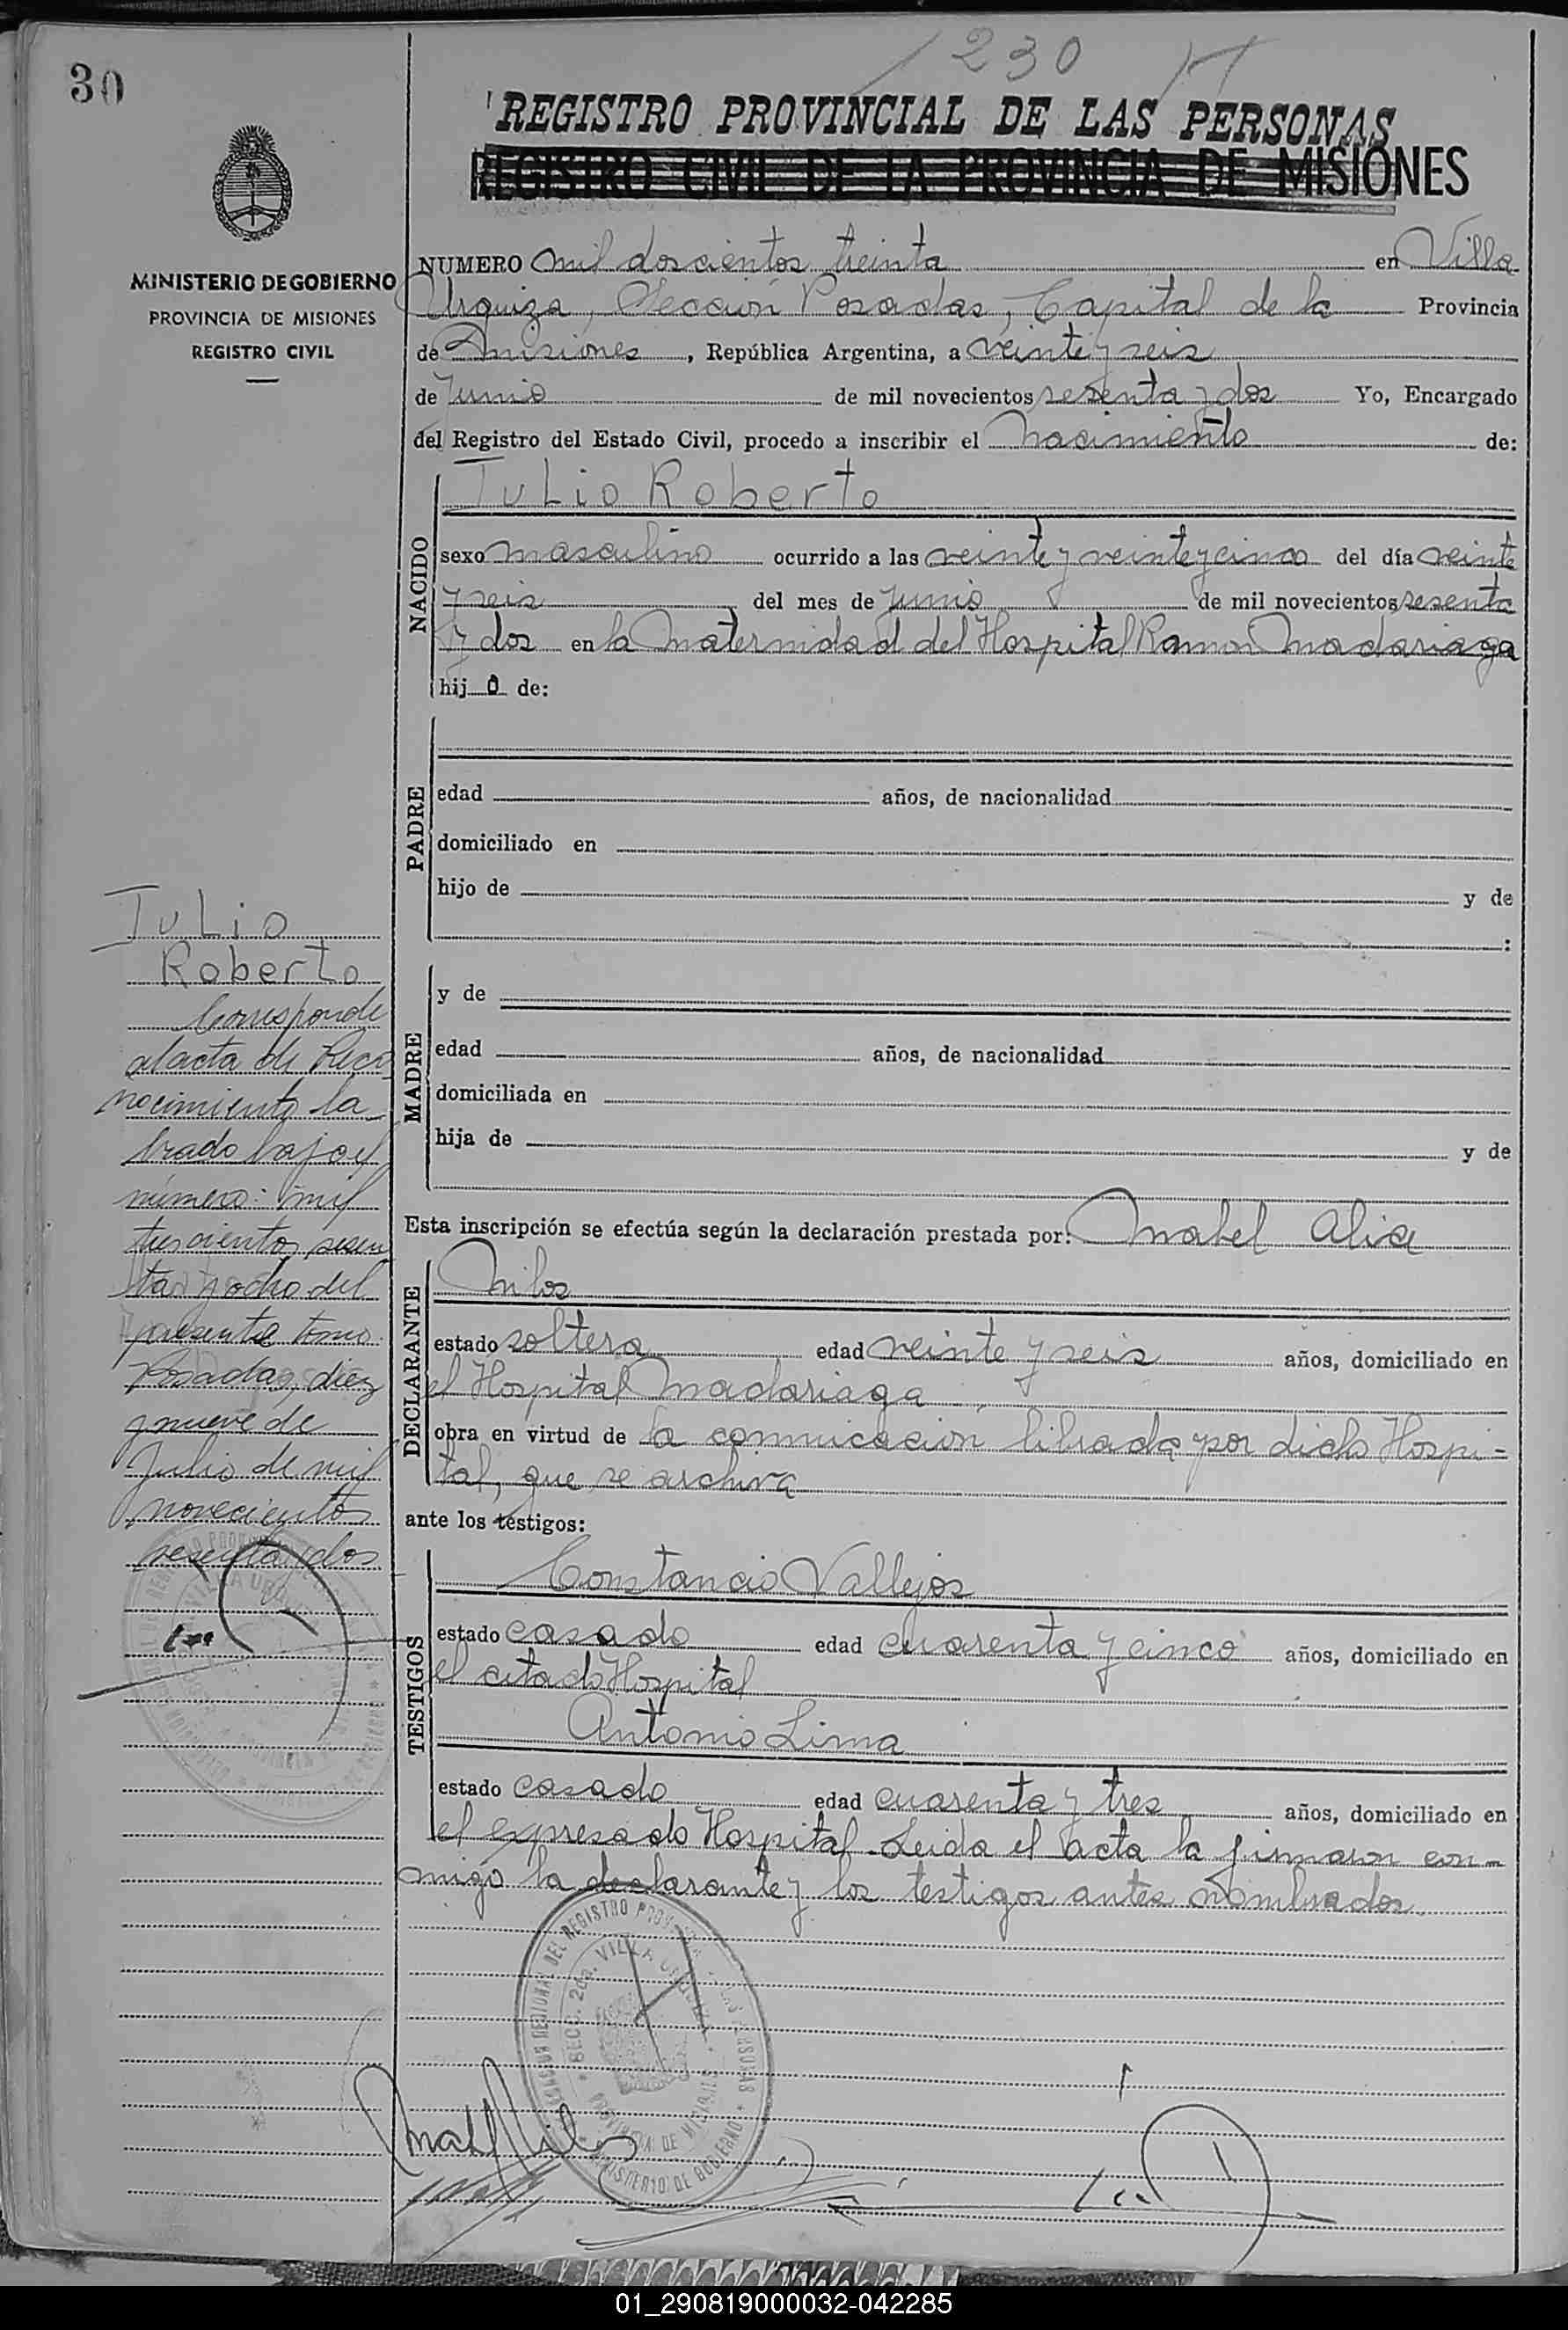 30
1230
REGISTRO PROVINCIAL DE LAS PERSONAS
REGISTRO CIVIL DE LA PROVINCIA DE MISIONES
MINISTERIO DE GOBIERNO
PROVINCIA DE MISIONES
REGISTRO CIVIL
NUMERO mil doscientos treinta en Villa
Urquiza, Sección Posadas, Capital de la Provincia
de Misiones, República Argentina, a veinte y seis
de Junio de mil novecientos sesenta y dos Yo, Encargado
del Registro del Estado Civil, procedo a inscribir el nacimiento de:
NACIDO
Julio Roberto
sexo masculino ocurrido a las veinte y veinte y cinco del día veinte
y seis del mes de Junio de mil novecientos sesenta
y dos en la Maternidad del Hospital Ramon Madariaga
hijo de:
PADRE
edad años, de nacionalidad
domiciliado en
hijo de y de
:
MADRE
y de
edad años, de nacionalidad
domiciliada en
hija de y de
Esta inscripción se efectúa según la declaración prestada por: Mabel Alice
DECLARANTE
Milos
estado soltera edad veinte y seis años, domiciliado en
el Hospital Madariaga
obra en virtud de la comunicacion librada por dicho Hospi-
tal, que se archiva
ante los testigos:
TESTIGOS
Constancio Vallejos
estado casado edad cuarenta y cinco años, domiciliado en
el citado Hospital
Antonio Lima
estado casado edad cuarenta y tres años, domiciliado en
el expresado Hospital. Leida el acta la firmaron con-
migo la declarante y los testigos antes nombrados.
Julio
Roberto
Corresponde
al acta de Reco
nocimiento la
brado bajo el
número: mil
trescientos sesen
ta y ocho del
presente tomo.
Posadas, diez
y nueve de
Julio de mil
novecientos
sesenta y dos
Mabel Milos
01_290819000032-042285